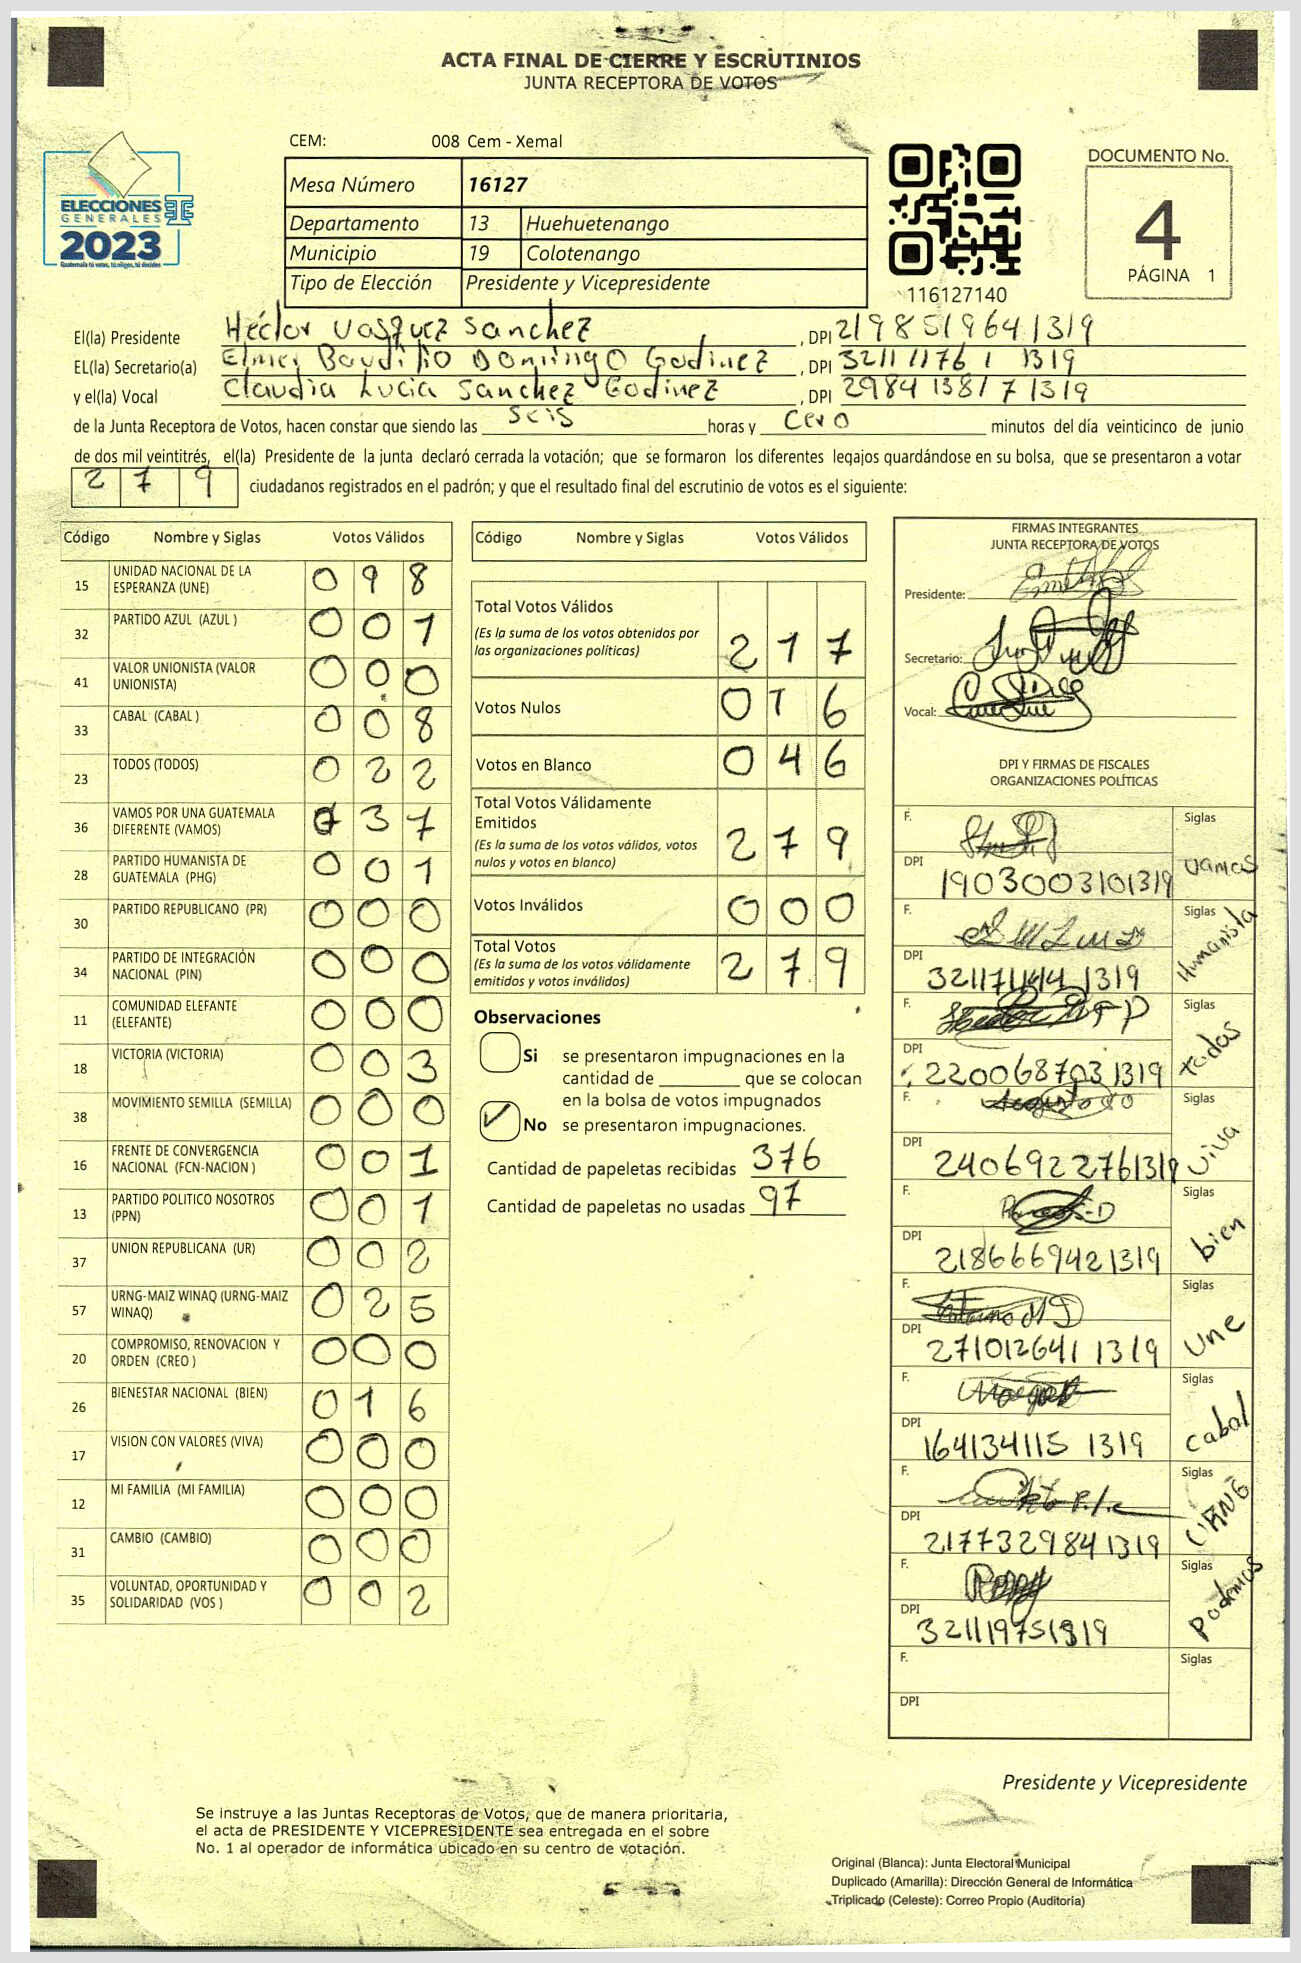 ACTA FINAL DE CIERRE Y ESCRUTINIOS
JUNTA RECEPTORA DE VOTOS
CEM: 008 Cem - Xemal
ELECCIONES
GENERALES
2023
Guatemala tú votas, tú eliges, tú decides
Mesa Número 16127
Departamento 13 Huehuetenango
Municipio 19 Colotenango
Tipo de Elección Presidente y Vicepresidente
116127140
DOCUMENTO No.
4
PÁGINA 1
El(la) Presidente Héctor Vasquez Sanchez, DPI 219851964 1319
EL(la) Secretario(a) Elmer Baudilio Domingo Godinez, DPI 321111761 1319
y el(la) Vocal Claudia Lucia Sanchez Godinez, DPI 298413817 1319
de la Junta Receptora de Votos, hacen constar que siendo las seis horas y cero minutos del día veinticinco de junio
de dos mil veintitrés, el(la) Presidente de la junta declaró cerrada la votación; que se formaron los diferentes legajos guardándose en su bolsa, que se presentaron a votar
279 ciudadanos registrados en el padrón; y que el resultado final del escrutinio de votos es el siguiente:
Código Nombre y Siglas Votos Válidos
15 UNIDAD NACIONAL DE LA ESPERANZA (UNE) 098
32 PARTIDO AZUL (AZUL ) 001
41 VALOR UNIONISTA (VALOR UNIONISTA) 000
33 CABAL (CABAL ) 008
23 TODOS (TODOS) 022
36 VAMOS POR UNA GUATEMALA DIFERENTE (VAMOS) 037
28 PARTIDO HUMANISTA DE GUATEMALA (PHG) 001
30 PARTIDO REPUBLICANO (PR) 000
34 PARTIDO DE INTEGRACIÓN NACIONAL (PIN) 000
11 COMUNIDAD ELEFANTE (ELEFANTE) 000
18 VICTORIA (VICTORIA) 003
38 MOVIMIENTO SEMILLA (SEMILLA) 000
16 FRENTE DE CONVERGENCIA NACIONAL (FCN-NACION ) 001
13 PARTIDO POLITICO NOSOTROS (PPN) 001
37 UNION REPUBLICANA (UR) 002
57 URNG-MAIZ WINAQ (URNG-MAIZ WINAQ) 025
20 COMPROMISO, RENOVACION Y ORDEN (CREO ) 000
26 BIENESTAR NACIONAL (BIEN) 016
17 VISION CON VALORES (VIVA) 000
12 MI FAMILIA (MI FAMILIA) 000
31 CAMBIO (CAMBIO) 000
35 VOLUNTAD, OPORTUNIDAD Y SOLIDARIDAD (VOS ) 002
Código Nombre y Siglas Votos Válidos
Total Votos Válidos 217
(Es la suma de los votos obtenidos por las organizaciones políticas)
Votos Nulos 016
Votos en Blanco 046
Total Votos Válidamente Emitidos 279
(Es la suma de los votos válidos, votos nulos y votos en blanco)
Votos Inválidos 000
Total Votos 279
(Es la suma de los votos válidamente emitidos y votos inválidos)
Observaciones
Si se presentaron impugnaciones en la
cantidad de ________ que se colocan
en la bolsa de votos impugnados
No se presentaron impugnaciones.
Cantidad de papeletas recibidas 376
Cantidad de papeletas no usadas 97
FIRMAS INTEGRANTES
JUNTA RECEPTORA DE VOTOS
Presidente:
Secretario:
Vocal:
DPI Y FIRMAS DE FISCALES
ORGANIZACIONES POLÍTICAS
F. Siglas vamos
DPI 1903003101319
F. Siglas Humanista
DPI 321171444 1319
F. Siglas todos
DPI 220068703 1319
F. Siglas viva
DPI 2406922761319
F. Siglas bien
DPI 218666942 1319
F. Siglas Une
DPI 271012641 1319
F. Siglas cabal
DPI 164134115 1319
F. Siglas URNG
DPI 217732984 1319
F. Siglas Podemos
DPI 321119751319
F. Siglas
DPI
Presidente y Vicepresidente
Se instruye a las Juntas Receptoras de Votos, que de manera prioritaria,
el acta de PRESIDENTE Y VICEPRESIDENTE sea entregada en el sobre
No. 1 al operador de informática ubicado en su centro de votación.
Original (Blanca): Junta Electoral Municipal
Duplicado (Amarilla): Dirección General de Informática
Triplicado (Celeste): Correo Propio (Auditoría)